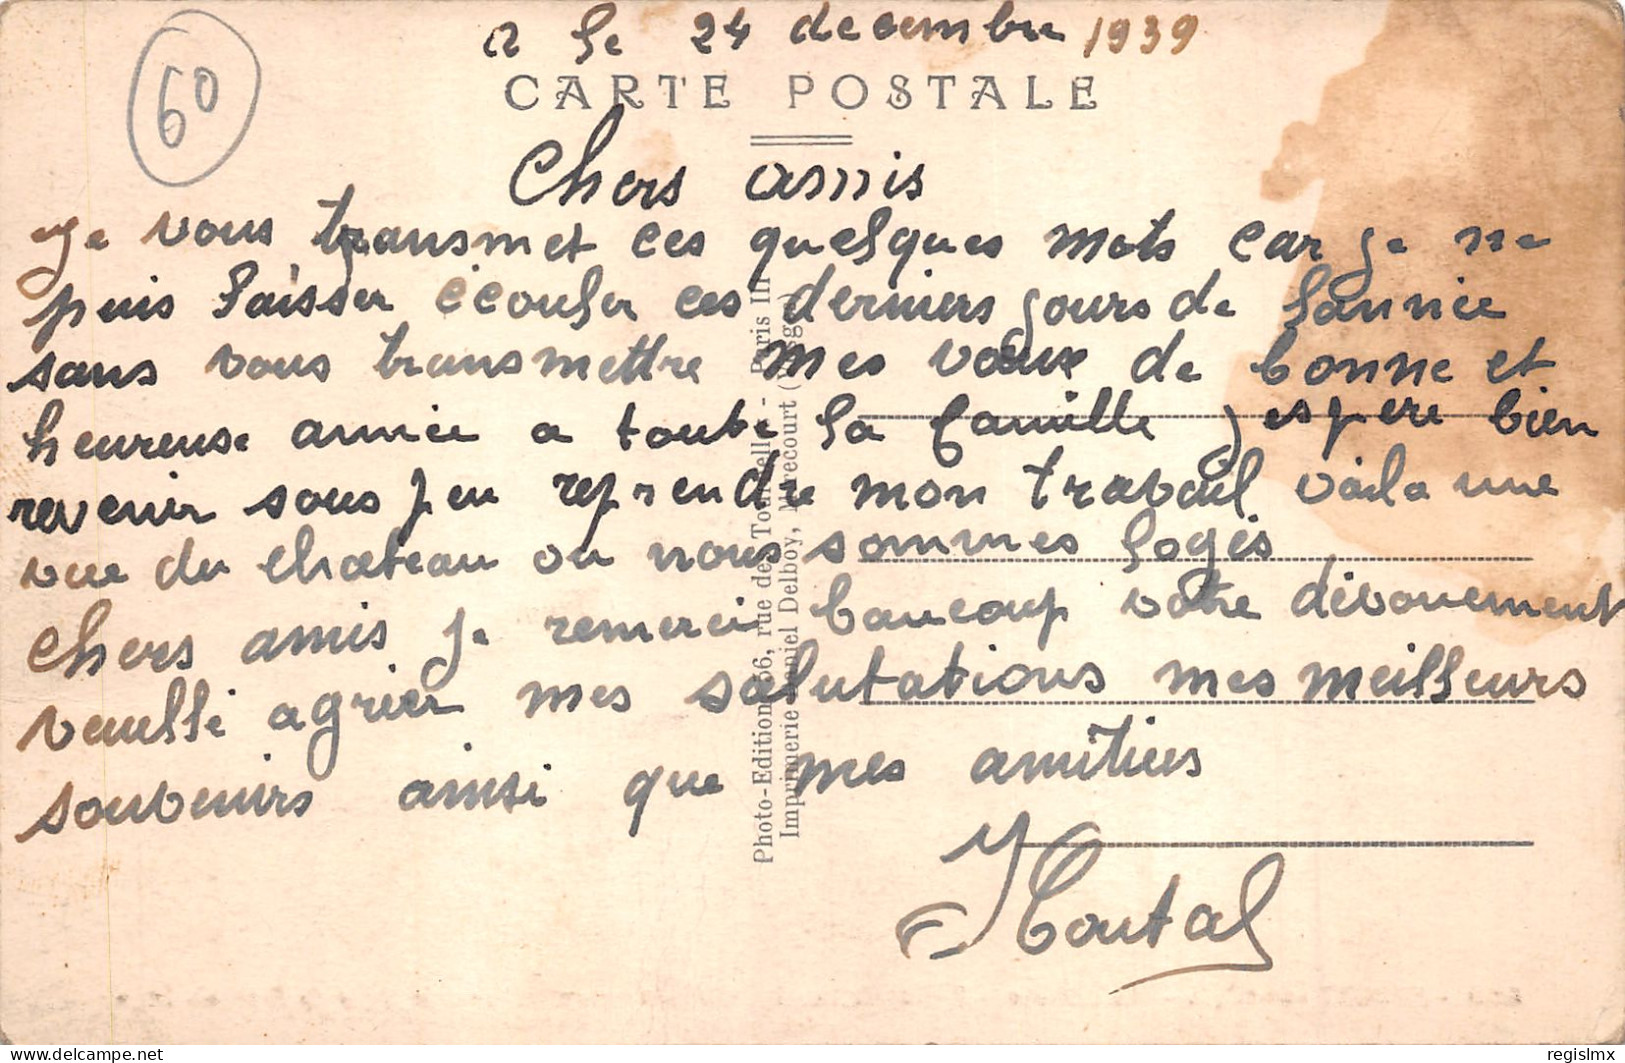 a le 24 decembre 1939
60
CARTE POSTALE
Chers amis
Je vous transmet ces quelques mots car je ne
puis laisser ecouler ces derniers jours de lannée
sans vous transmettre mes voeux de bonne et
heureuse année a toute la famille jespere bien
revenir sous peu reprendre mon travail voila une
vue du chateau ou nous sommes logés
Chers amis je remercie baucoup votre dévouement
veuillé agrier mes salutations mes meilleurs
souvenirs ainsi que mes amitiées
Photo-Edition 66, rue de Tourelles - Paris III
Imprimerie Daniel Delboy, Mirecourt
delcampe.net
regislmx